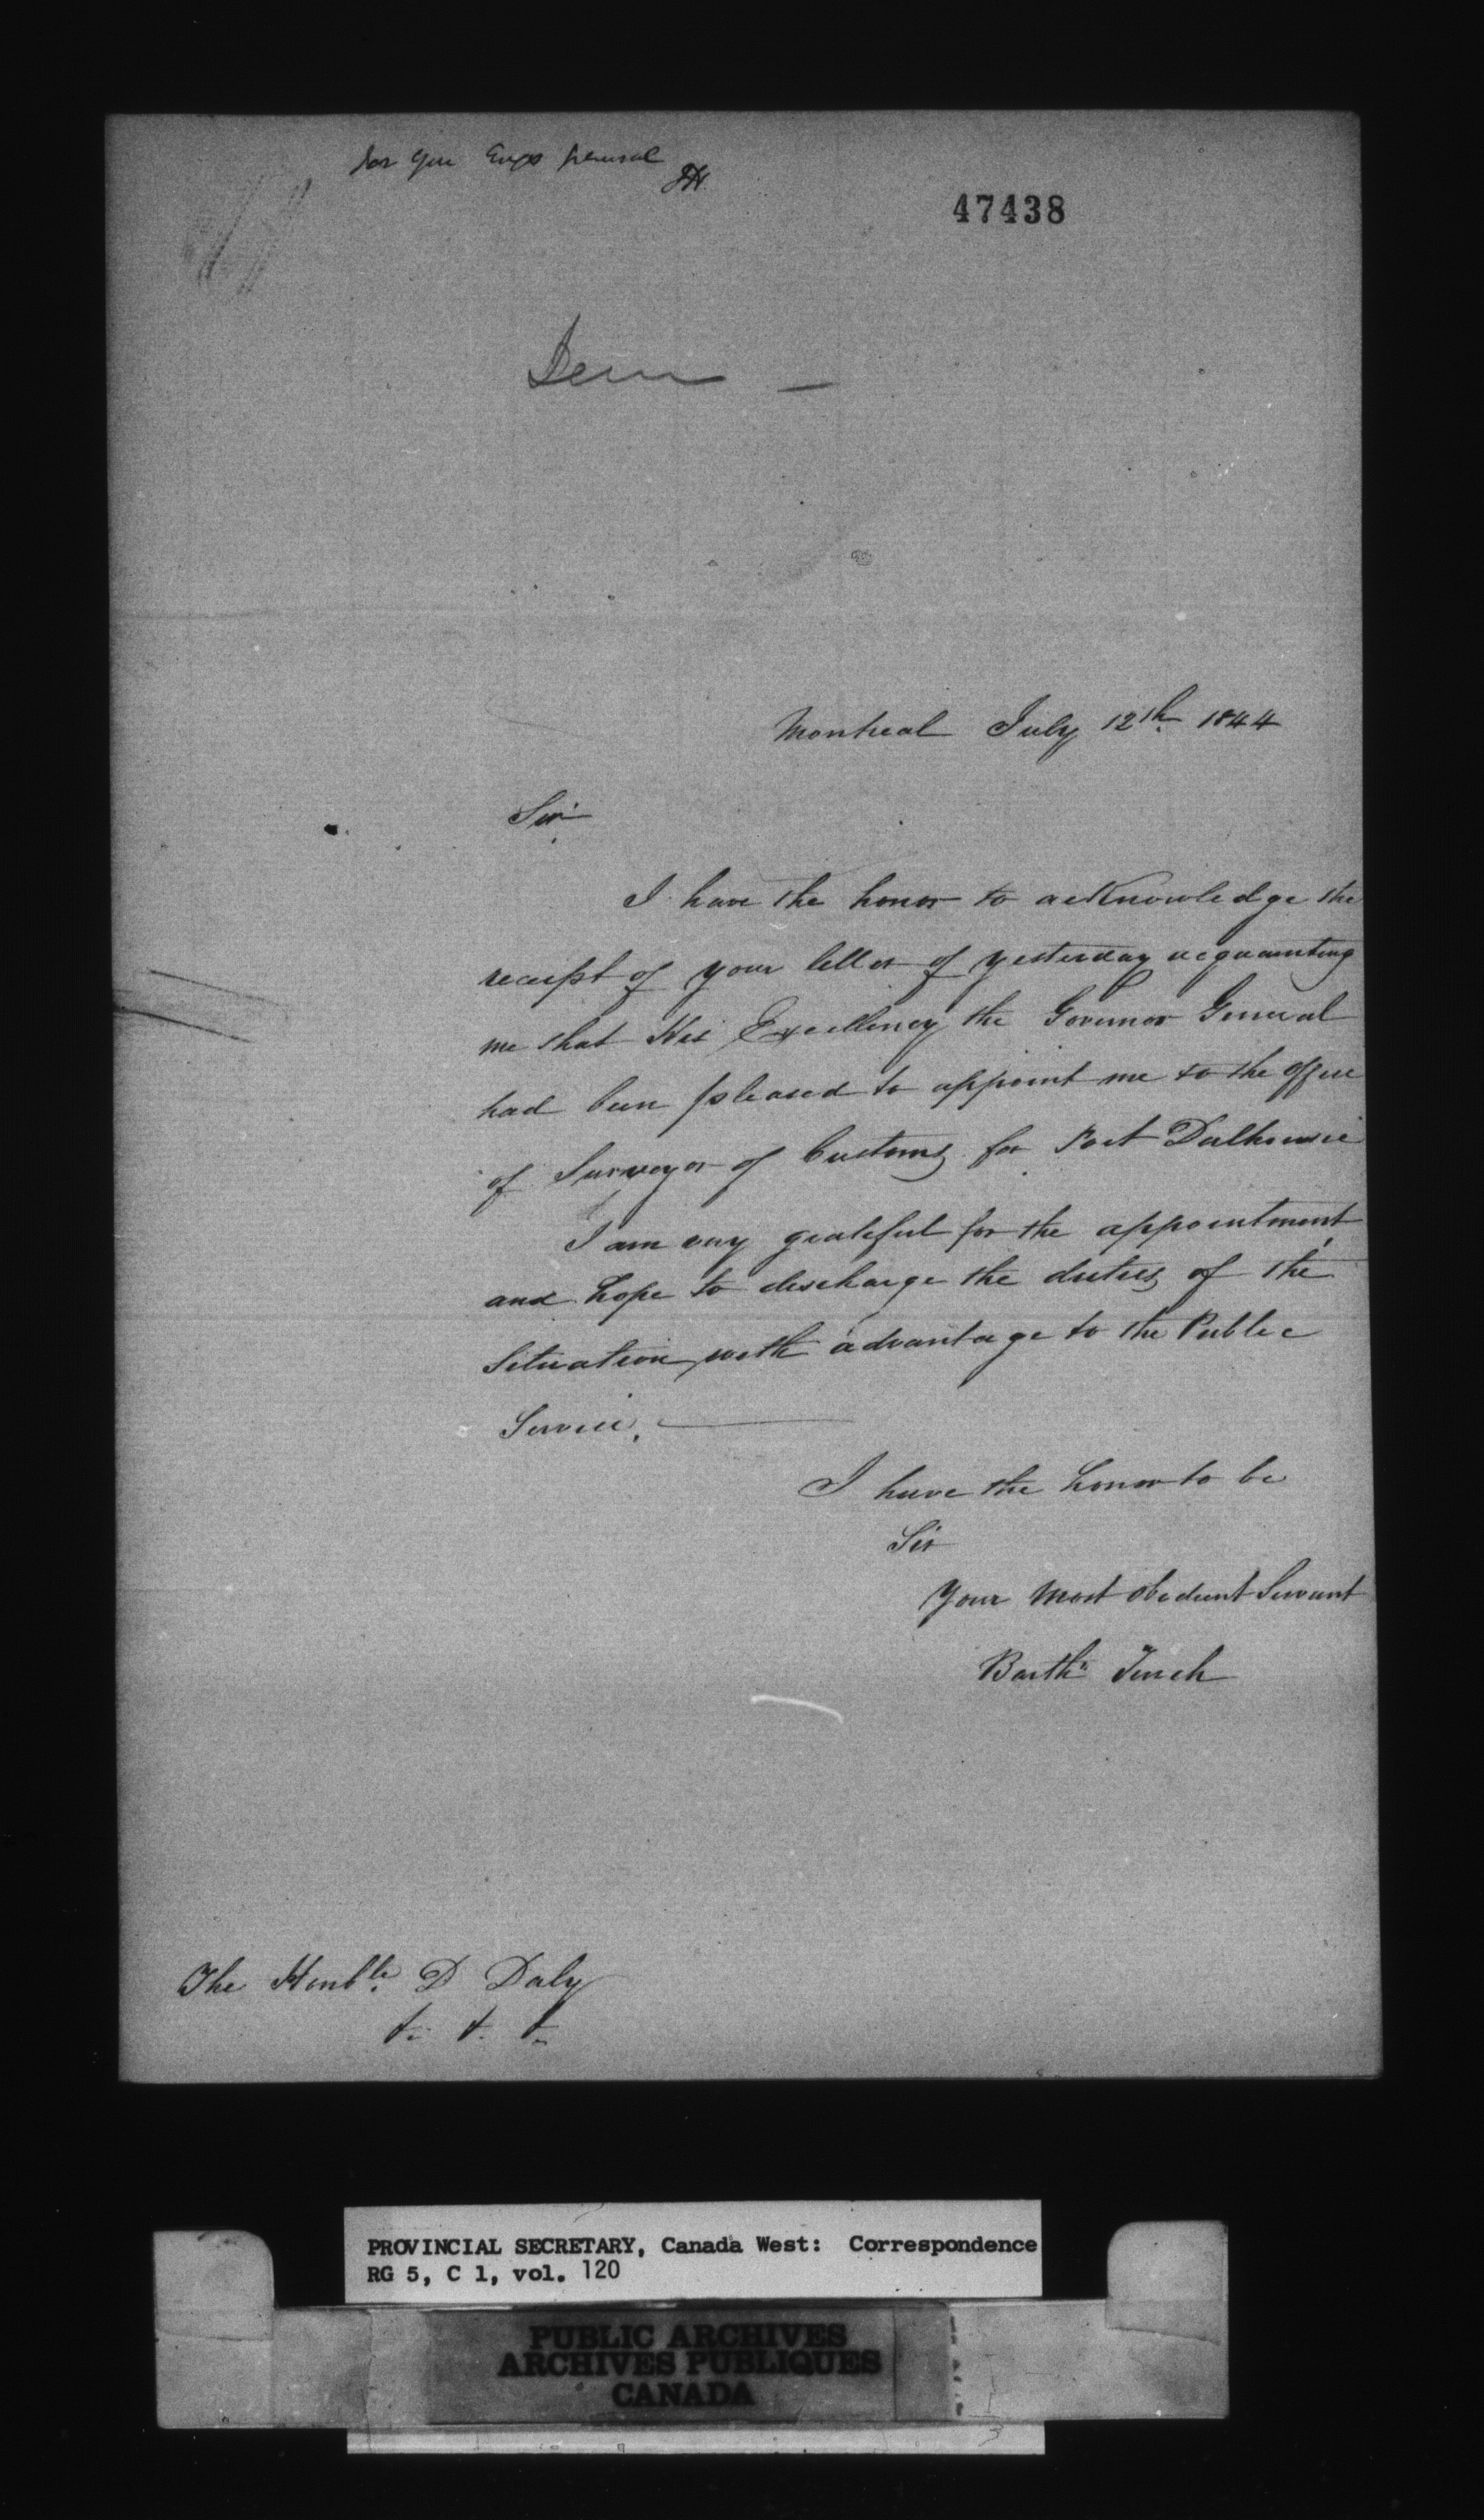 for
perusal
47438
Montreal July 12th 1844
Sir
I have the honor to acknowledge the
receipt of your letter of yesterday acquainting
me that His Excellency the Governor General
had been pleased to appoint me to the office
of Surveyor of Customs for Port Dalhousie
I am very grateful for the appointment
and hope to discharge the duties of the
Situation with advantage to the Public
Service.
I have the honor to be
Sir
Your most obedient Servant
Barthw Tench
The Honble D Daly
&. &. &.
PROVINCIAL SECRETARY, Canada West: Correspondence
RG 5, C 1, vol. 120
PUBLIC ARCHIVES
ARCHIVES PUBLIQUES
CANADA